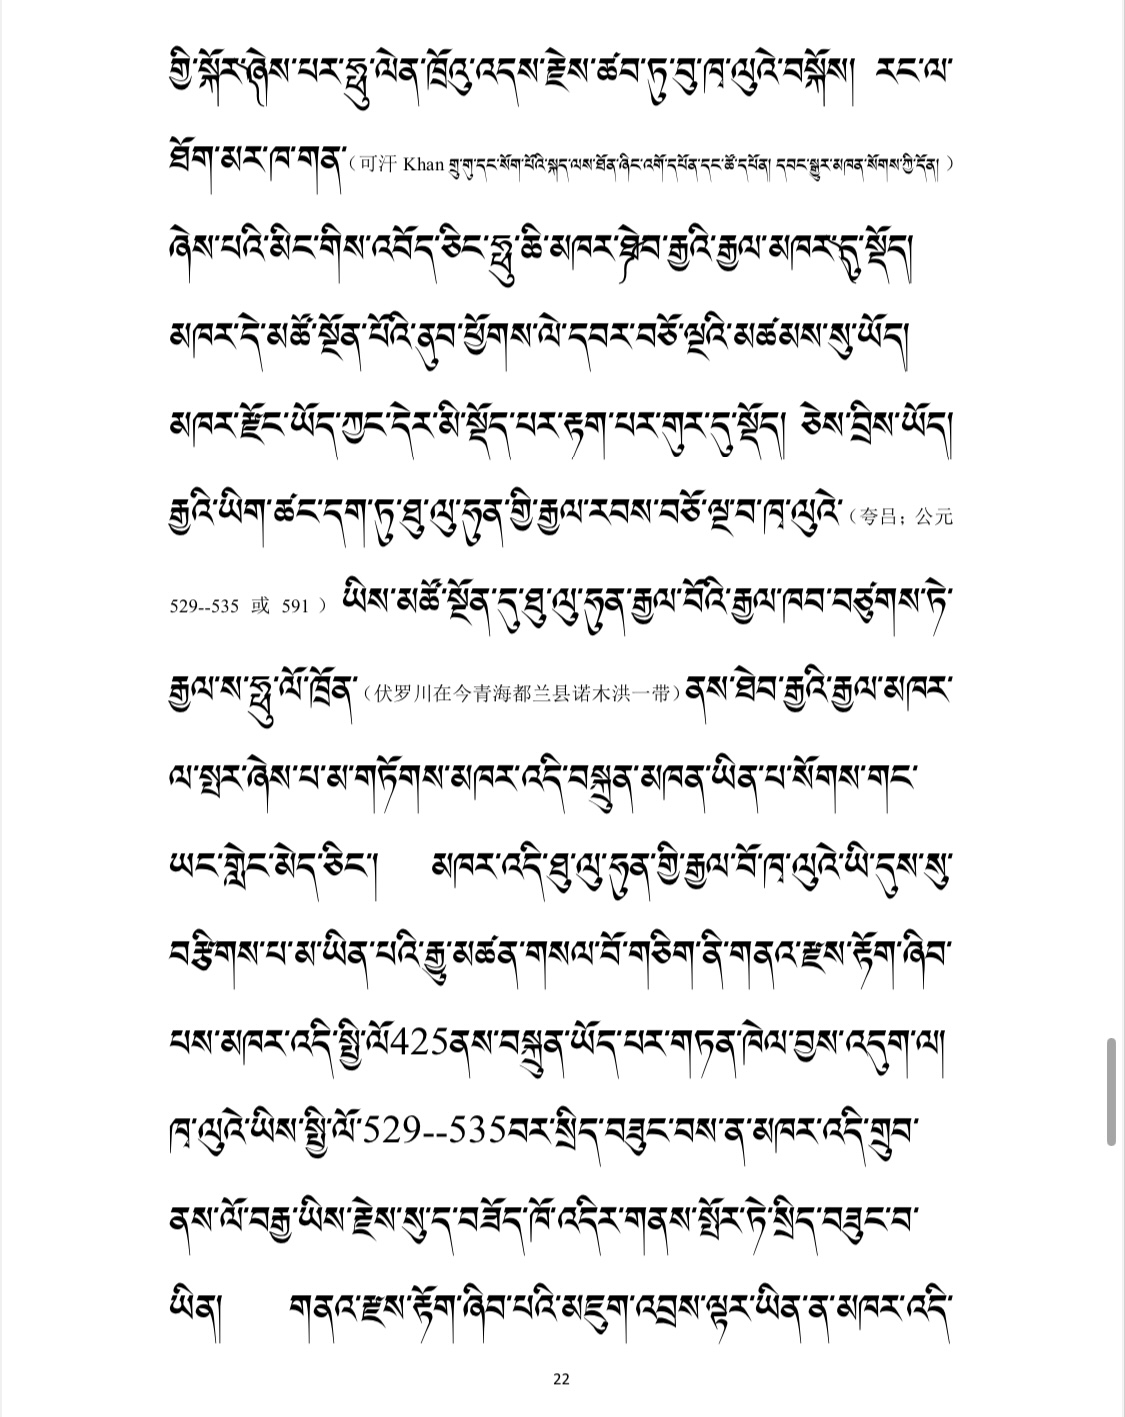 གྱི་སྐོར་ཞེས་པར་ཧྥུ་ལེན་ཁྲོའུ་འདས་རྗེས་ཚབ་ཏུ་བུ་ཁྭ་ལུའེ་བསྐོས། རང་ལ་
ཐོག་མར་ཁ་གན་（可汗 Khan གྲུ་གུ་དང་སོག་པོའི་སྐད་ལས་ཐོན་ཞིང་འགོ་དཔོན་དང་ཚོ་དཔོན། དབང་སྒྱུར་མཁན་སོགས་ཀྱི་དོན། ）
ཞེས་པའི་མིང་གིས་འབོད་ཅིང་ཧྥུ་ཆི་མཁར་ཐེབ་རྒྱའི་རྒྱལ་མཁར་དུ་སྡོད།
མཁར་དེ་མཚོ་སྔོན་པོའི་ནུབ་ཕྱོགས་ལེ་དབར་བཅོ་ལྔའི་མཚམས་སུ་ཡོད།
མཁར་རྫོང་ཡོད་ཀྱང་དེར་མི་སྡོད་པར་རྟག་པར་གུར་དུ་སྡོད། ཅེས་བྲིས་ཡོད།
རྒྱའི་ཡིག་ཚང་དག་ཏུ་ཐུ་ལུ་ཧུན་གྱི་རྒྱལ་རབས་བཅོ་ལྔ་བ་ཁྭ་ལུའེ་（夸吕；公元
529--535 或 591 ）ཡིས་མཚོ་སྔོན་དུ་ཐུ་ལུ་ཧུན་རྒྱལ་བོའི་རྒྱལ་ཁབ་བཙུགས་ཏེ་
རྒྱལ་ས་ཧྥུ་ལོ་ཁྲོན་（伏罗川在今青海都兰县诺木洪一带）ནས་ཐེབ་རྒྱའི་རྒྱལ་མཁར་
ལ་སྤར་ཞེས་པ་མ་གཏོགས་མཁར་འདི་བསྐྲུན་མཁན་ཡིན་པ་སོགས་གང་
ཡང་གླེང་མེད་ཅིང་། མཁར་འདི་ཐུ་ལུ་ཧུན་གྱི་རྒྱལ་བོ་ཁྭ་ལུའེ་ཡི་དུས་སུ་
བརྩིགས་པ་མ་ཡིན་པའི་རྒྱུ་མཚན་གསལ་བོ་གཅིག་ནི་གནའ་རྫས་རྟོག་ཞིབ་
པས་མཁར་འདི་སྤྱི་ལོ425ནས་བསྐྲུན་ཡོད་པར་གཏན་ཁེལ་བྱས་འདུག་ལ།
ཁྭ་ལུའེ་ཡིས་སྤྱི་ལོ་529--535བར་སྲིད་བཟུང་བས་ན་མཁར་འདི་གྲུབ་
ནས་ལོ་བརྒྱ་ཡིས་རྗེས་སུ་ད་བཟོད་ཁོ་འདིར་གནས་སྤོར་ཏེ་སྲིད་བཟུང་བ་
ཡིན། གནའ་རྫས་རྟོག་ཞིབ་པའི་མཇུག་འབྲས་ལྟར་ཡིན་ན་མཁར་འདི་
22